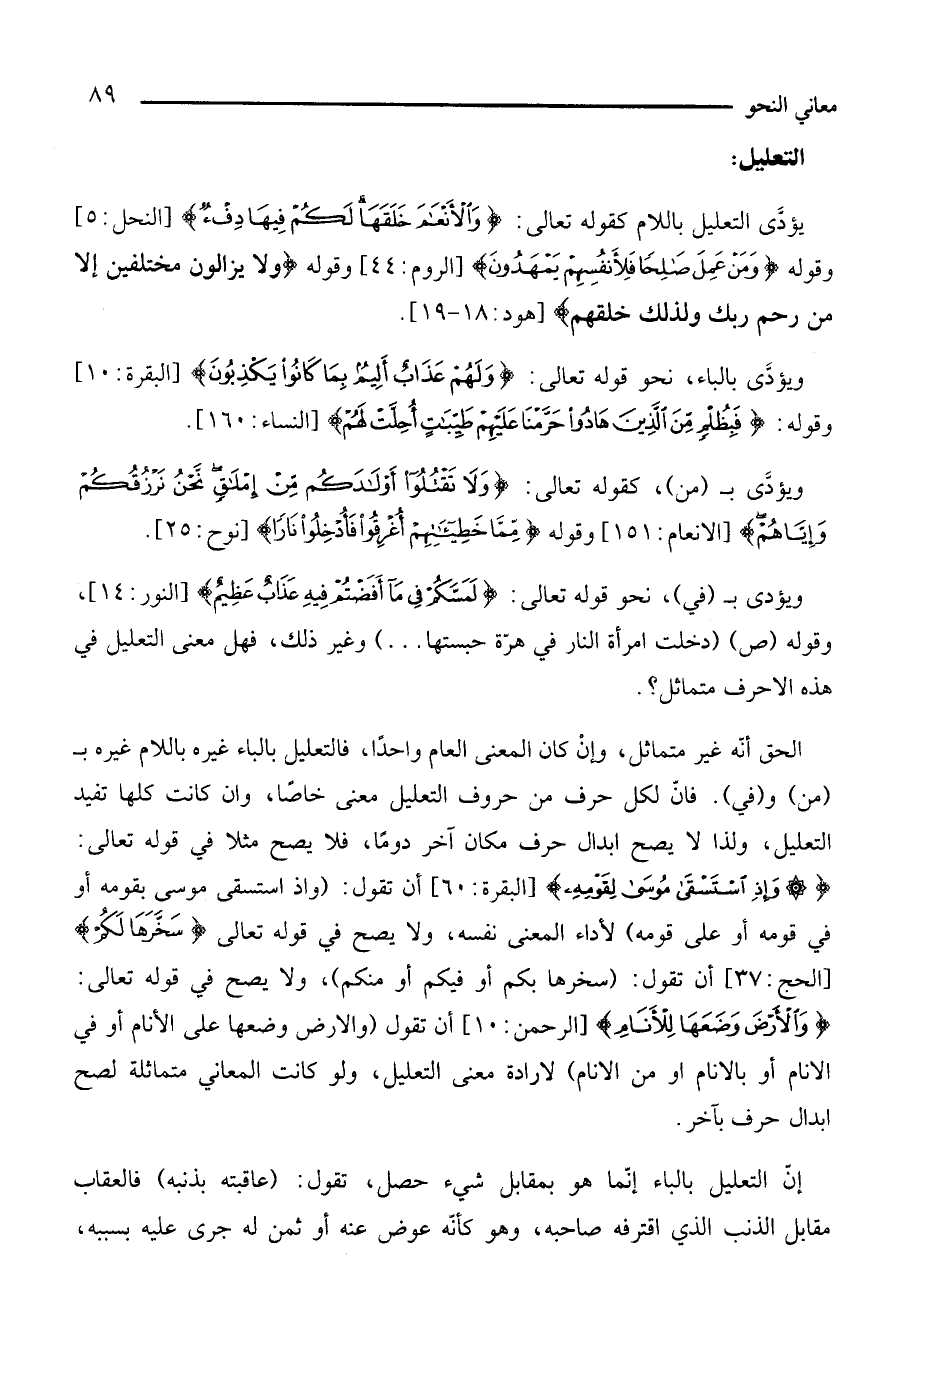 معاني النحو ٨٩
التعليل:
يؤدَّى التعليل باللام كقوله تعالى: ﴿وَٱلْأَنْعَٰمَ خَلَقَهَاۗ لَكُمْ فِيهَا دِفْءٌ﴾ [النحل:٥]
وقوله ﴿وَمَنْ عَمِلَ صَٰلِحًا فَلِأَنفُسِهِمْ يَمْهَدُونَ﴾ [الروم:٤٤] وقوله ﴿ولا يزالون مختلفين إلا
من رحم ربك ولذلك خلقهم﴾ [هود:١٨-١٩].
ويؤدَّى بالباء، نحو قوله تعالى: ﴿وَلَهُمْ عَذَابٌ أَلِيمٌۢ بِمَا كَانُوا۟ يَكْذِبُونَ﴾ [البقرة:١٠]
وقوله: ﴿فَبِظُلْمٍ مِّنَ ٱلَّذِينَ هَادُوا۟ حَرَّمْنَا عَلَيْهِمْ طَيِّبَٰتٍ أُحِلَّتْ لَهُمْ﴾ [النساء:١٦٠].
ويؤدَّى بـ (من)، كقوله تعالى: ﴿وَلَا تَقْتُلُوٓا۟ أَوْلَٰدَكُم مِّنْ إِمْلَٰقٍۖ نَّحْنُ نَرْزُقُكُمْ
وَإِيَّاهُمْۖ﴾ [الانعام:١٥١] وقوله ﴿مِّمَّا خَطِيٓـَٰٔتِهِمْ أُغْرِقُوا۟ فَأُدْخِلُوا۟ نَارًا﴾ [نوح:٢٥].
ويؤدى بـ (في)، نحو قوله تعالى: ﴿لَمَسَّكُمْ فِى مَآ أَفَضْتُمْ فِيهِ عَذَابٌ عَظِيمٌ﴾ [النور:١٤]،
وقوله (ص) (دخلت امرأة النار في هرّة حبستها...) وغير ذلك، فهل معنى التعليل في
هذه الاحرف متماثل؟.
الحق أنّه غير متماثل، وإنْ كان المعنى العام واحدًا، فالتعليل بالباء غيره باللام غيره بـ
(من) و(في). فانّ لكل حرف من حروف التعليل معنى خاصًا، وان كانت كلها تفيد
التعليل، ولذا لا يصح ابدال حرف مكان آخر دومًا، فلا يصح مثلا في قوله تعالى:
﴿۞ وَإِذِ ٱسْتَسْقَىٰ مُوسَىٰ لِقَوْمِهِۦ﴾ [البقرة:٦٠] أن تقول: (واذ استسقى موسى بقومه أو
في قومه أو على قومه) لأداء المعنى نفسه، ولا يصح في قوله تعالى ﴿سَخَّرَهَا لَكُمْ﴾
[الحج:٣٧] أن تقول: (سخرها بكم أو فيكم أو منكم)، ولا يصح في قوله تعالى:
﴿وَٱلْأَرْضَ وَضَعَهَا لِلْأَنَامِ﴾ [الرحمن:١٠] أن تقول (والارض وضعها على الأنام أو في
الانام أو بالانام او من الانام) لارادة معنى التعليل، ولو كانت المعاني متماثلة لصح
ابدال حرف بآخر.
إنّ التعليل بالباء إنّما هو بمقابل شيء حصل، تقول: (عاقبته بذنبه) فالعقاب
مقابل الذنب الذي اقترفه صاحبه، وهو كأنّه عوض عنه أو ثمن له جرى عليه بسببه،